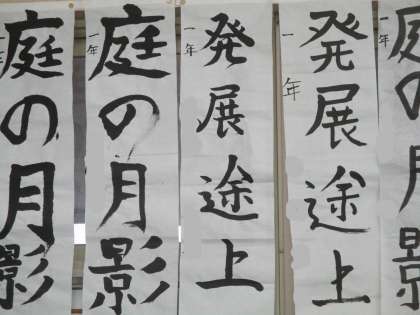 庭の月影
一年
発展途上
一年
発展途上
一年
庭の月影
一年
庭の月影